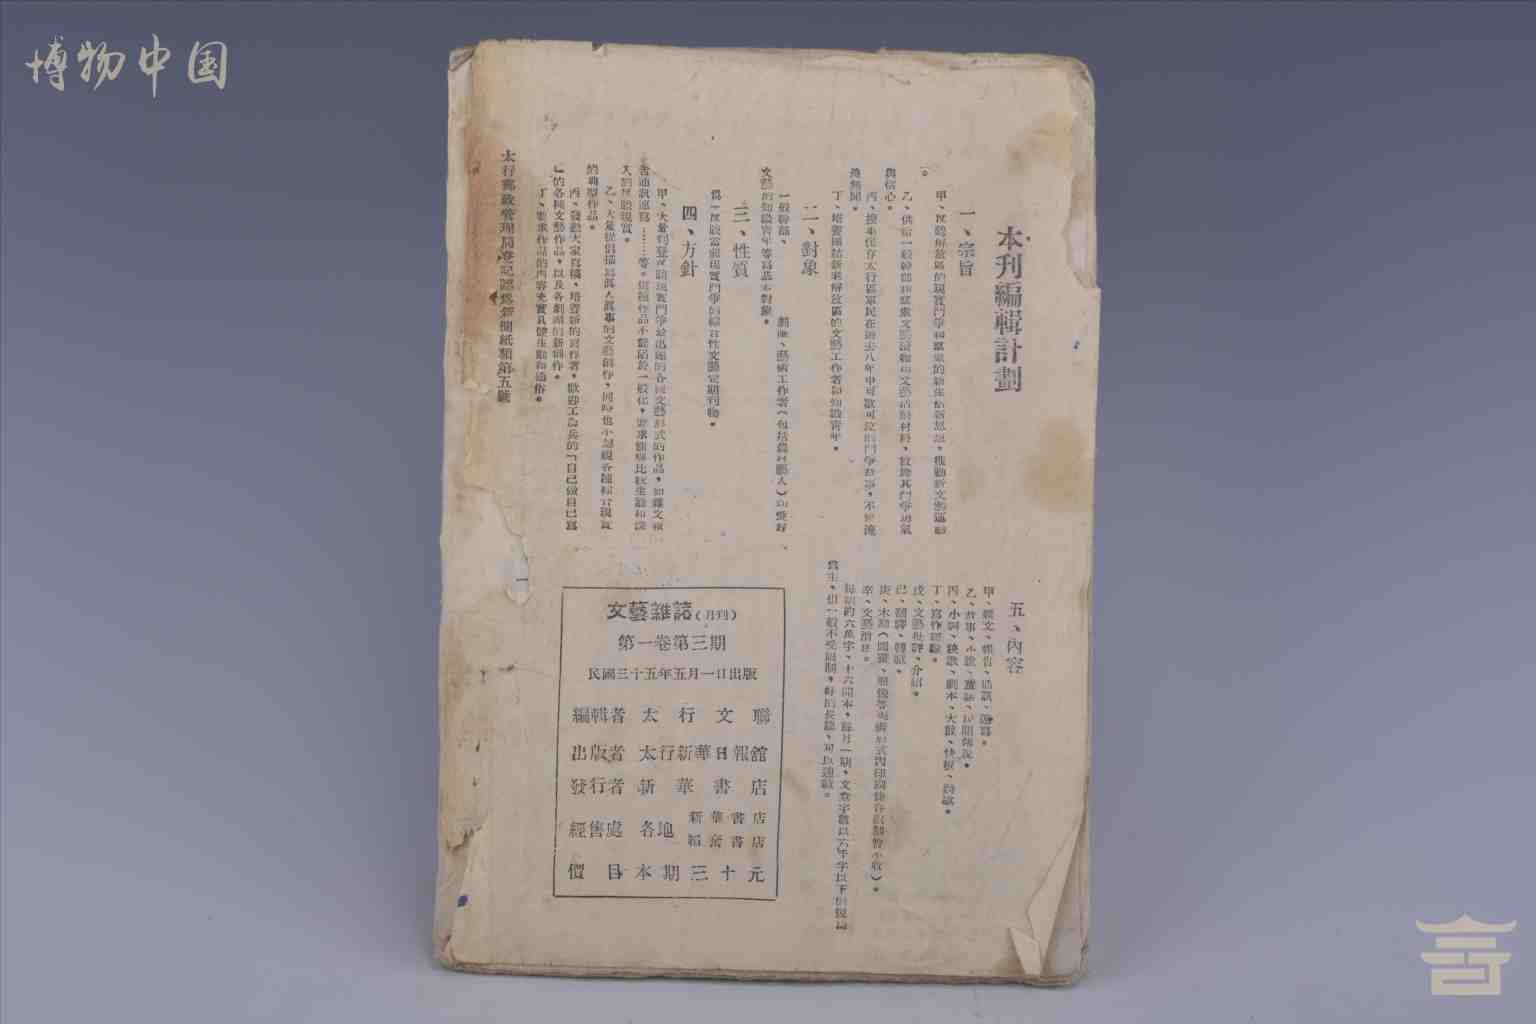 博物中国
本刊編輯計劃
一、宗旨
甲、反映解放區的現實鬥爭和羣衆的新生活新思想，推動新文藝運動
。
乙、供給一般幹部和羣衆文藝讀物和文藝活動材料，鼓舞其鬥爭勇氣
與信心。
丙、搜集保存太行區軍民在過去八年中可歌可泣的鬥爭故事，不使湮
沒無聞。
丁、培養團結新老解放區的文藝工作者和知識青年。
二、對象
一般幹部、劇團、藝術工作者（包括農村藝人）以愛好
文藝的知識青年等爲基本對象。
三、性質
爲一反映當前現實鬥爭的綜合性文藝定期刊物。
四、方針
甲、大量刊登反映現實鬥爭並出過的各種文藝形式的作品，如雜文報
告通訊速寫……等。但題作品不能陷於一般化，要求能够比較生動和深
入的反映現實。
乙、大量提倡描寫眞人眞事的文藝創作，同時也不忽視各種綜合現實
的典型作品。
丙、發動大家寫稿，培養新的寫作者，歡迎工農兵的「自己做自己寫
」的各種文藝作品，以及各劇團的新創作。
丁、要求作品的內容充實具健生動和通俗。
太行郵政管理局登記認爲新聞紙類第五號
五、內容
甲、雜文、報告、通訊、速寫。
乙、故事、小說、童話、民間傳說。
丙、小調、秧歌、劇本、大鼓、快板、詩歌。
丁、寫作經驗。
戊、文藝批評、介紹。
己、翻譯、轉載。
庚、木刻（圖畫、照像等美術形式因印刷條件限制暫不收）。
辛、文藝消息。
每期約六萬字，十六開本，每月一期，文章字數以六千字以下
爲主，但一般不受限制，好的長篇，可以連載。
文藝雜誌（月刊）
第一卷第三期
民國三十五年五月一日出版
編輯者 太行文聯
出版者 太行新華日報館
發行者 新華書店
經售處 各地 新華書店
韜奮書店
價目 本期三十元